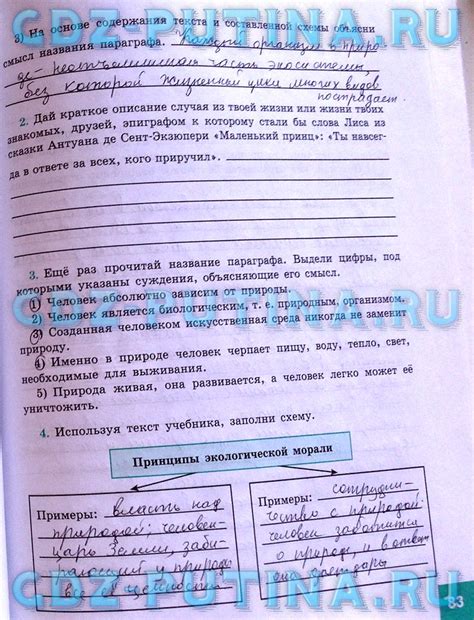 GDZ-PUTINA.RU
3) На основе содержания текста и составленной схемы объясни
смысл названия параграфа. Каждый организм в приро-
де - неотъемлемая часть экосистемы,
без которой жизненный цикл многих видов
пострадает.
2. Дай краткое описание случая из твоей жизни или жизни твоих
знакомых, друзей, эпиграфом к которому стали бы слова Лиса из
сказки Антуана де Сент-Экзюпери «Маленький принц»: «Ты навсег-
да в ответе за всех, кого приручил».
3. Ещё раз прочитай название параграфа. Выдели цифры, под
которыми указаны суждения, объясняющие его смысл.
1) Человек абсолютно зависим от природы.
2) Человек является биологическим, т. е. природным, организмом.
GDZ-PUTINA.RU
3) Созданная человеком искусственная среда никогда не заменит
природу.
4) Именно в природе человек черпает пищу, воду, тепло, свет,
необходимые для выживания.
5) Природа живая, она развивается, а человек легко может её
уничтожить.
4. Используя текст учебника, заполни схему.
Принципы экологической морали
Примеры: власть над
природой; человек-
царь Земли, заби-
рающий у природы
все её ценности
Примеры: сотрудни-
чество с природой
человек заботится
о природе, и в ответ
GDZ-PUTINA.RU
83